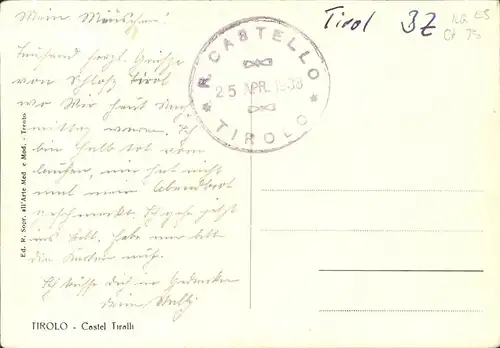 Mein Mäuschen!
Tausend herzl. Grüße
von Schloß Tirol
wo Wir heut Nach
mittag waren. Ich
bin halb tot vom
laufen, mir hat nicht
mal mein Abendbrot
geschmeckt. Ich gehe jetzt
ins Bett. habe nur bitte
die Karten
Ich küsse dich in Gedanken
dein
Tirol BZ
R. CASTELLO
25 APR. 1938
TIROLO
Ed. R. Sopr. all'Arte Med e Mod. - Trento
TIROLO - Castel Tiralli